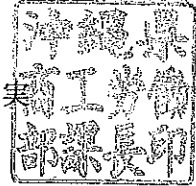 沖縄県
実
商工労働
部課長印